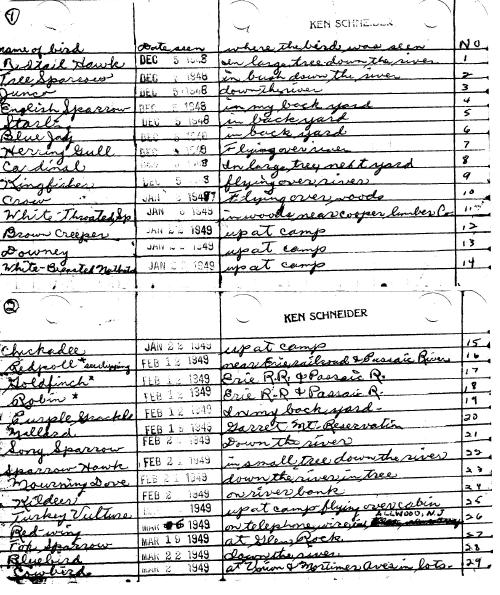 1
KEN SCHNEIDER
name of bird Date seen where the bird was seen No
Redtail Hawk DEC 5 1948 in large tree down the river 1
Tree Sparrow DEC 1948 in bush down the river 2
Junco DEC 5 1948 down the river 3
English Sparrow DEC 5 1948 in my back yard 4
Starl DEC 5 1948 in back yard 5
Blue Jay DEC 5 1948 in back yard 6
Herring Gull DEC 1948 Flying over river 7
Cardinal DEC 8 In large tree next yard 8
Kingfisher DEC 5 flying over river 9
Crow JAN Flying over woods 10
White Throated Sp JAN 1949 in woods near cooper lumber Co. 11
Brown Creeper JAN 1949 up at camp 12
Downey JAN 1949 up at camp 13
White-Breasted Nuthatch JAN 1949 up at camp 14
2
KEN SCHNEIDER
Chickadee JAN 22 1949 up at camp 15
Redpoll * FEB 12 1949 near Erie railroad & Passaic River 16
Goldfinch * FEB 12 1949 Erie R.R. & Passaic R. 17
Robin * FEB 12 1949 Erie R.R & Passaic R. 18
Purple Grackle FEB 12 1949 In my back yard 19
Mallard FEB 1949 Garret Mt. Reservation 20
Song Sparrow FEB 2 1949 Down the river 21
Sparrow Hawk FEB 2 1949 in small tree down the river 22
Mourning Dove FEB 2 1949 down the river in tree 23
Kildeer FEB 2 1949 on river bank 24
Turkey Vulture 1949 up at camp flying over cabin 25
Red wing MAR 6 1949 on telephone wire in ALLWOOD, NJ 26
Fox Sparrow MAR 19 1949 at Glen Rock 27
Bluebird MAR 22 1949 down the river 28
Cowbird MAR 2 1949 at Union & Mortimer Aves in lots. 29